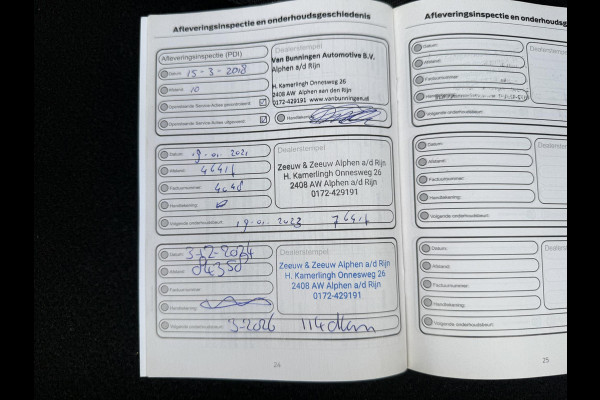 Afleveringsinspectie en onderhoudsgeschiedenis
Afleveringsinspectie (PDI)
Datum: 15-3-2018
Afstand: 10
Dealerstempel
Van Bunningen Automotive B.V.
Alphen a/d Rijn
H. Kamerlingh Onnesweg 26
2408 AW Alphen aan den Rijn
0172-429191 www.vanbunningen.nl
Handtekening:
Datum: 19-01-2021
Afstand:
Factuurnummer:
Handtekening:
Volgende onderhoudsbeurt: 19-01-2023
Dealerstempel
Zeeuw & Zeeuw Alphen a/d Rijn
H. Kamerlingh Onnesweg 26
2408 AW Alphen a/d Rijn
0172-429191
Datum: 3-2-2024
Afstand: 84350
Factuurnummer:
Handtekening:
Volgende onderhoudsbeurt: 3-2026
Dealerstempel
Zeeuw & Zeeuw Alphen a/d Rijn
H. Kamerlingh Onnesweg 26
2408 AW Alphen a/d Rijn
0172-429191
24
Afleveringsinspectie en onderhoudsg
Datum:
Afstand:
Factuurnummer:
Volgende onderhoudsbeurt:
Datum:
Afstand:
Factuurnummer:
Handtekening:
Volgende onderhoudsbeurt:
Datum:
Afstand:
Factuurnummer:
Handtekening:
Volgende onderhoudsbeurt:
25